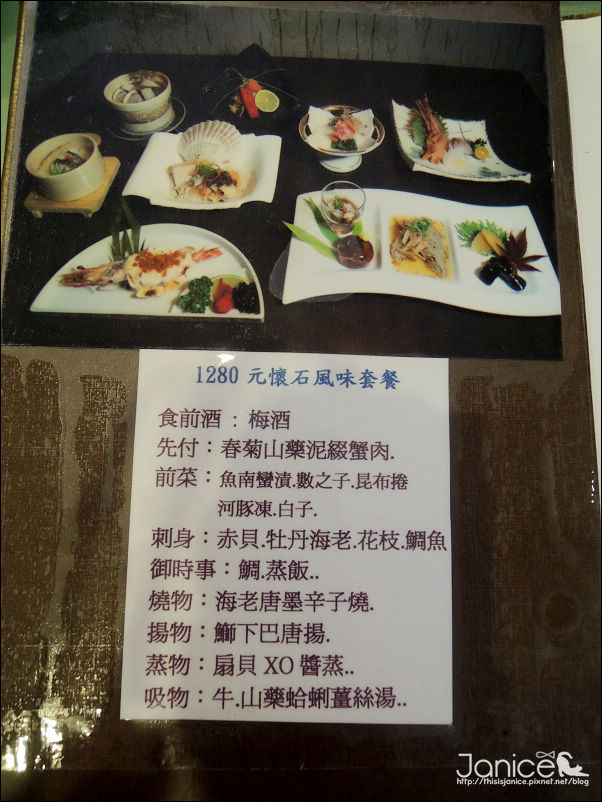 1280 元懷石風味套餐
食前酒：梅酒
先付：春菊山藥泥綴蟹肉.
前菜：魚南蠻漬.數之子.昆布捲
河豚凍.白子.
刺身：赤貝.牡丹海老.花枝.鯛魚
御時事：鯛.蒸飯..
燒物：海老唐墨辛子燒.
揚物：鰤下巴唐揚.
蒸物：扇貝 XO 醬蒸..
吸物：牛.山藥蛤蜊薑絲湯..
Janice
http://thisisjanice.pixnet.net/blog